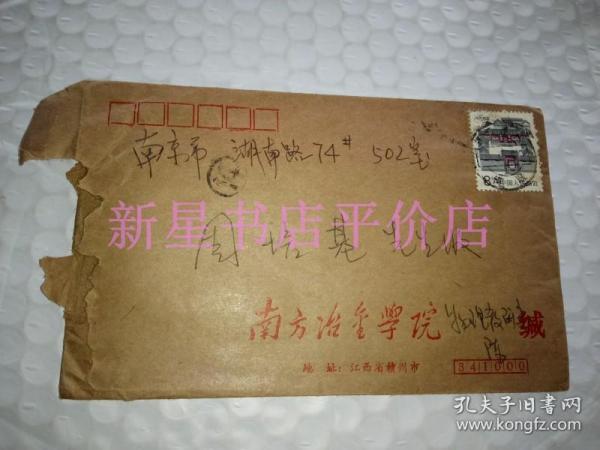 南京市 湖南路74# 502室
新星书店平价店
周培基 先生收
南方冶金学院 物理教研室 缄
陈
地 址：江西省赣州市
341000
孔夫子旧书网
www.kongfz.com